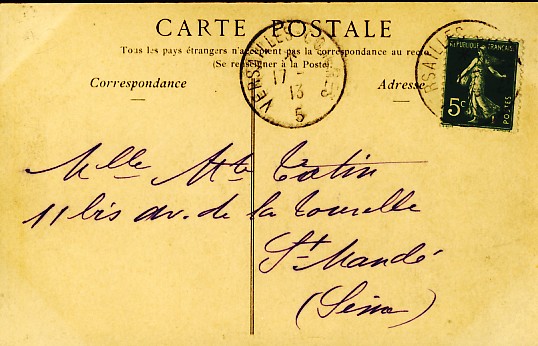 CARTE POSTALE
Tous les pays étrangers n'acceptent pas la correspondance au recto
(Se renseigner à la Poste)
Correspondance
Adresse
VERSAILLES
17 -
13
5
RSAILLES
REPUBLIQUE FRANÇAISE
5c
POSTES
Mlle Mte Tatin
11 bis av. de la Tourelle
St Mandé
(Seine)